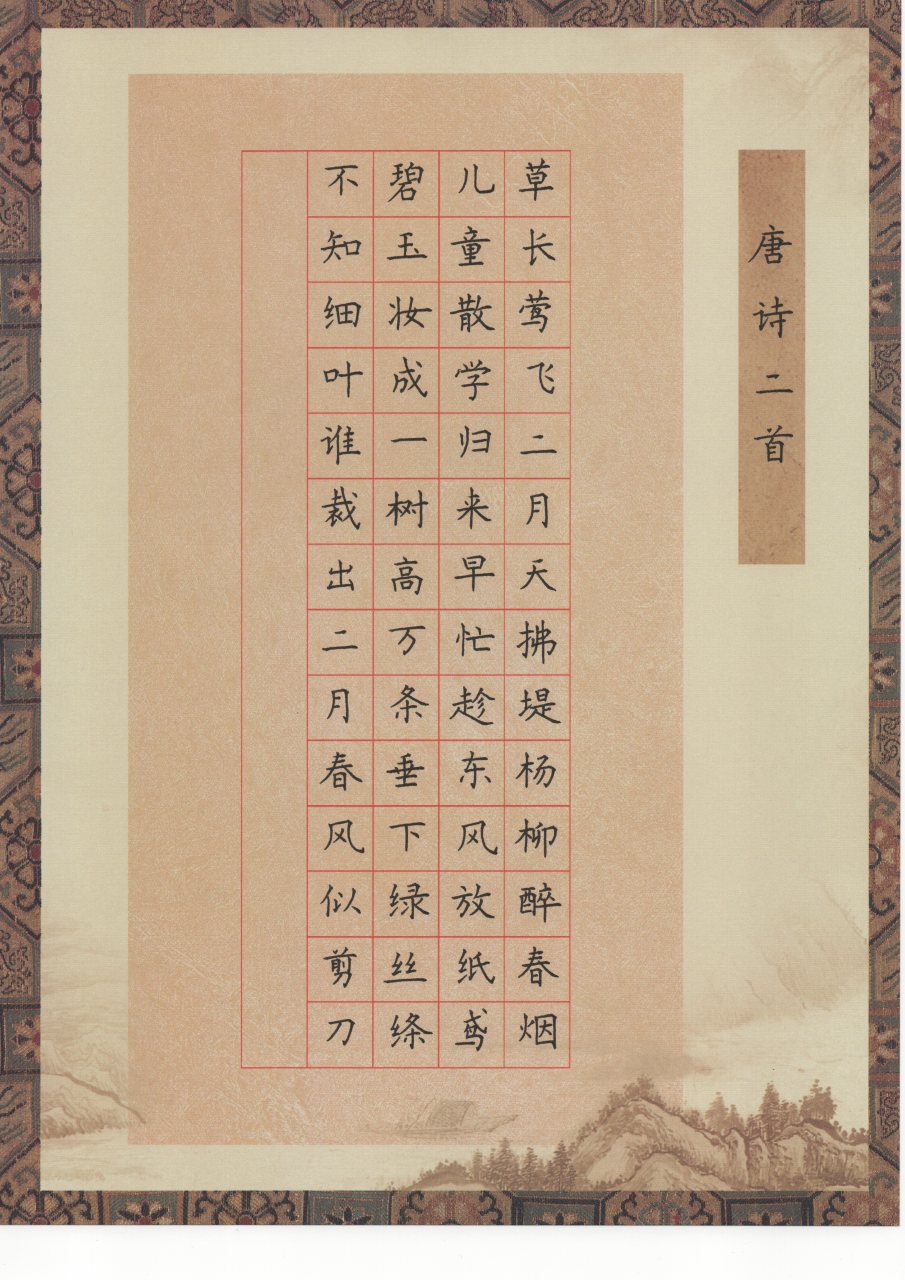 唐诗二首
草长莺飞二月天拂堤杨柳醉春烟
儿童散学归来早忙趁东风放纸鸢
碧玉妆成一树高万条垂下绿丝绦
不知细叶谁裁出二月春风似剪刀